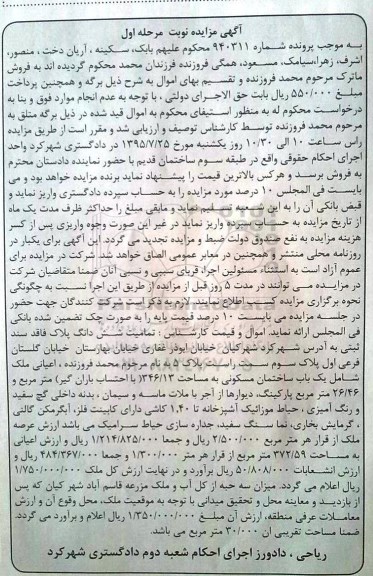 آگهی مزایده نوبت مرحله اول
به موجب پرونده شماره ۹۴۰۳۱۱ محکوم علیهم بابک، سکینه، آریان دخت، منصور،
اشرف، زهرا، سیامک، مسعود، همگی فروزنده فرزندان محمد محکوم گردیده اند به فروش
ماترک مرحوم محمد فروزنده و تقسیم بهای اموال به شرح ذیل برگه و همچنین پرداخت
مبلغ ۵۵۰/۰۰۰ ریال بابت حق الاجرای دولتی، با توجه به عدم انجام موارد فوق و بنا به
درخواست محکوم له به منظور استیفای محکوم به اموال قید شده در ذیل برگه متلق به
مرحوم محمد فروزنده توسط کارشناس توصیف و ارزیابی شد و مقرر است از طریق مزایده
راس ساعت ۱۰ الی ۱۰/۳۰ روز یکشنبه مورخ ۱۳۹۵/۷/۲۵ در دادگستری شهرکرد واحد
اجرای احکام حقوقی واقع در طبقه سوم ساختمان قدیم با حضور نماینده دادستان محترم
به فروش برسد و هرکس بالاترین قیمت را پیشنهاد نماید برنده مزایده خواهد بود و می
بایست فی المجلس ۱۰ درصد مورد مزایده را به حساب سپرده دادگستری واریز نماید و
قبض بانکی آن را به این شعبه تسلیم نماید و مابقی مبلغ را حداکثر ظرف مدت یک ماه
از تاریخ مزایده به حساب سپرده واریز نماید در غیر این صورت وجوه واریزی پس از کسر
هزینه مزایده به نفع صندوق دولت ضبط و مزایده تجدید می گردد. این آگهی برای یکبار در
روزنامه محلی منتشر و همچنین در معابر عمومی الصاق خواهد شد. شرکت در مزایده برای
عموم آزاد است به استثناء مسئولین اجرا، قربای سببی و نسبی آنان ضمنا متقاضیان شرکت
در مزایده می توانند در مدت ۵ روز قبل از مزایده از طریق این اجرا نسبت به چگونگی
نحوه برگزاری مزایده کسب اطلاع نمایند. لازم به ذکر است شرکت کنندگان جهت حضور
در جلسه مزایده می بایست ۱۰ درصد قیمت پایه را به صورت چک تضمین شده بانکی
فی المجلس ارائه نماید. اموال و قیمت کارشناسی: تمامیت شش دانگ پلاک فاقد سند
ثبتی به آدرس شهرکرد شهرکیان خیابان ابوذر غفاری خیابان بهارستان خیابان گلستان
فرعی اول پلاک سوم سمت راست پلاک ۵ به نام مرحوم محمد فروزنده، اعیانی ملک
شامل یک باب ساختمان مسکونی به مساحت ۳۴۶/۱۳ با احتساب باران گیر) متر مربع و
۲۶/۴۶ متر مربع پارکینگ، دیوارها از آجر با ملات ماسه و سیمان، بدنه داخلی گچ سفید
و رنگ آمیزی، حیاط موزائیک آشپزخانه تا ۱.۴۰ کاشی دارای کابینت فلز، آبگرمکن گالنی
، گرمایش بخاری، نما سنگ سفید، جداره سازی حیاط سرامیک می باشد ارزش عرصه
ملک از قرار هر متر مربع ۲/۵۰۰/۰۰۰ ریال و جمعا ۱/۲۱۴/۸۲۵/۰۰۰ ریال و ارزش اعیانی
به مساحت ۳۷۲/۵۹ متر مربع از قرار هر متر ۱/۳۰۰/۰۰۰ و جمعا ۴۸۴/۳۶۷/۰۰۰ ریال و
ارزش انشعابات ۵۰/۸۰۸/۰۰۰ ریال برآورد و در نهایت ارزش کل ملک ۱/۷۵۰/۰۰۰/۰۰۰
ریال اعلام می گردد. میزان سه حبه از کل آب و ملک مزرعه قاسم آباد شهر کیان که پس
از بازدید و معاینه محل و تحقیق میدانی با توجه به موقعیت ملک، محل وقوع آن و ارزش
معاملات عرفی منطقه، ارزش آن مبلغ ۱/۳۵۰/۰۰۰/۰۰۰ ریال اعلام و برآورد می گردد.
ضمنا مساحت تقریبی آن ۳۰/۰۰۰ متر مربع می باشد.
ریاحی، دادورز اجرای احکام شعبه دوم دادگستری شهرکرد